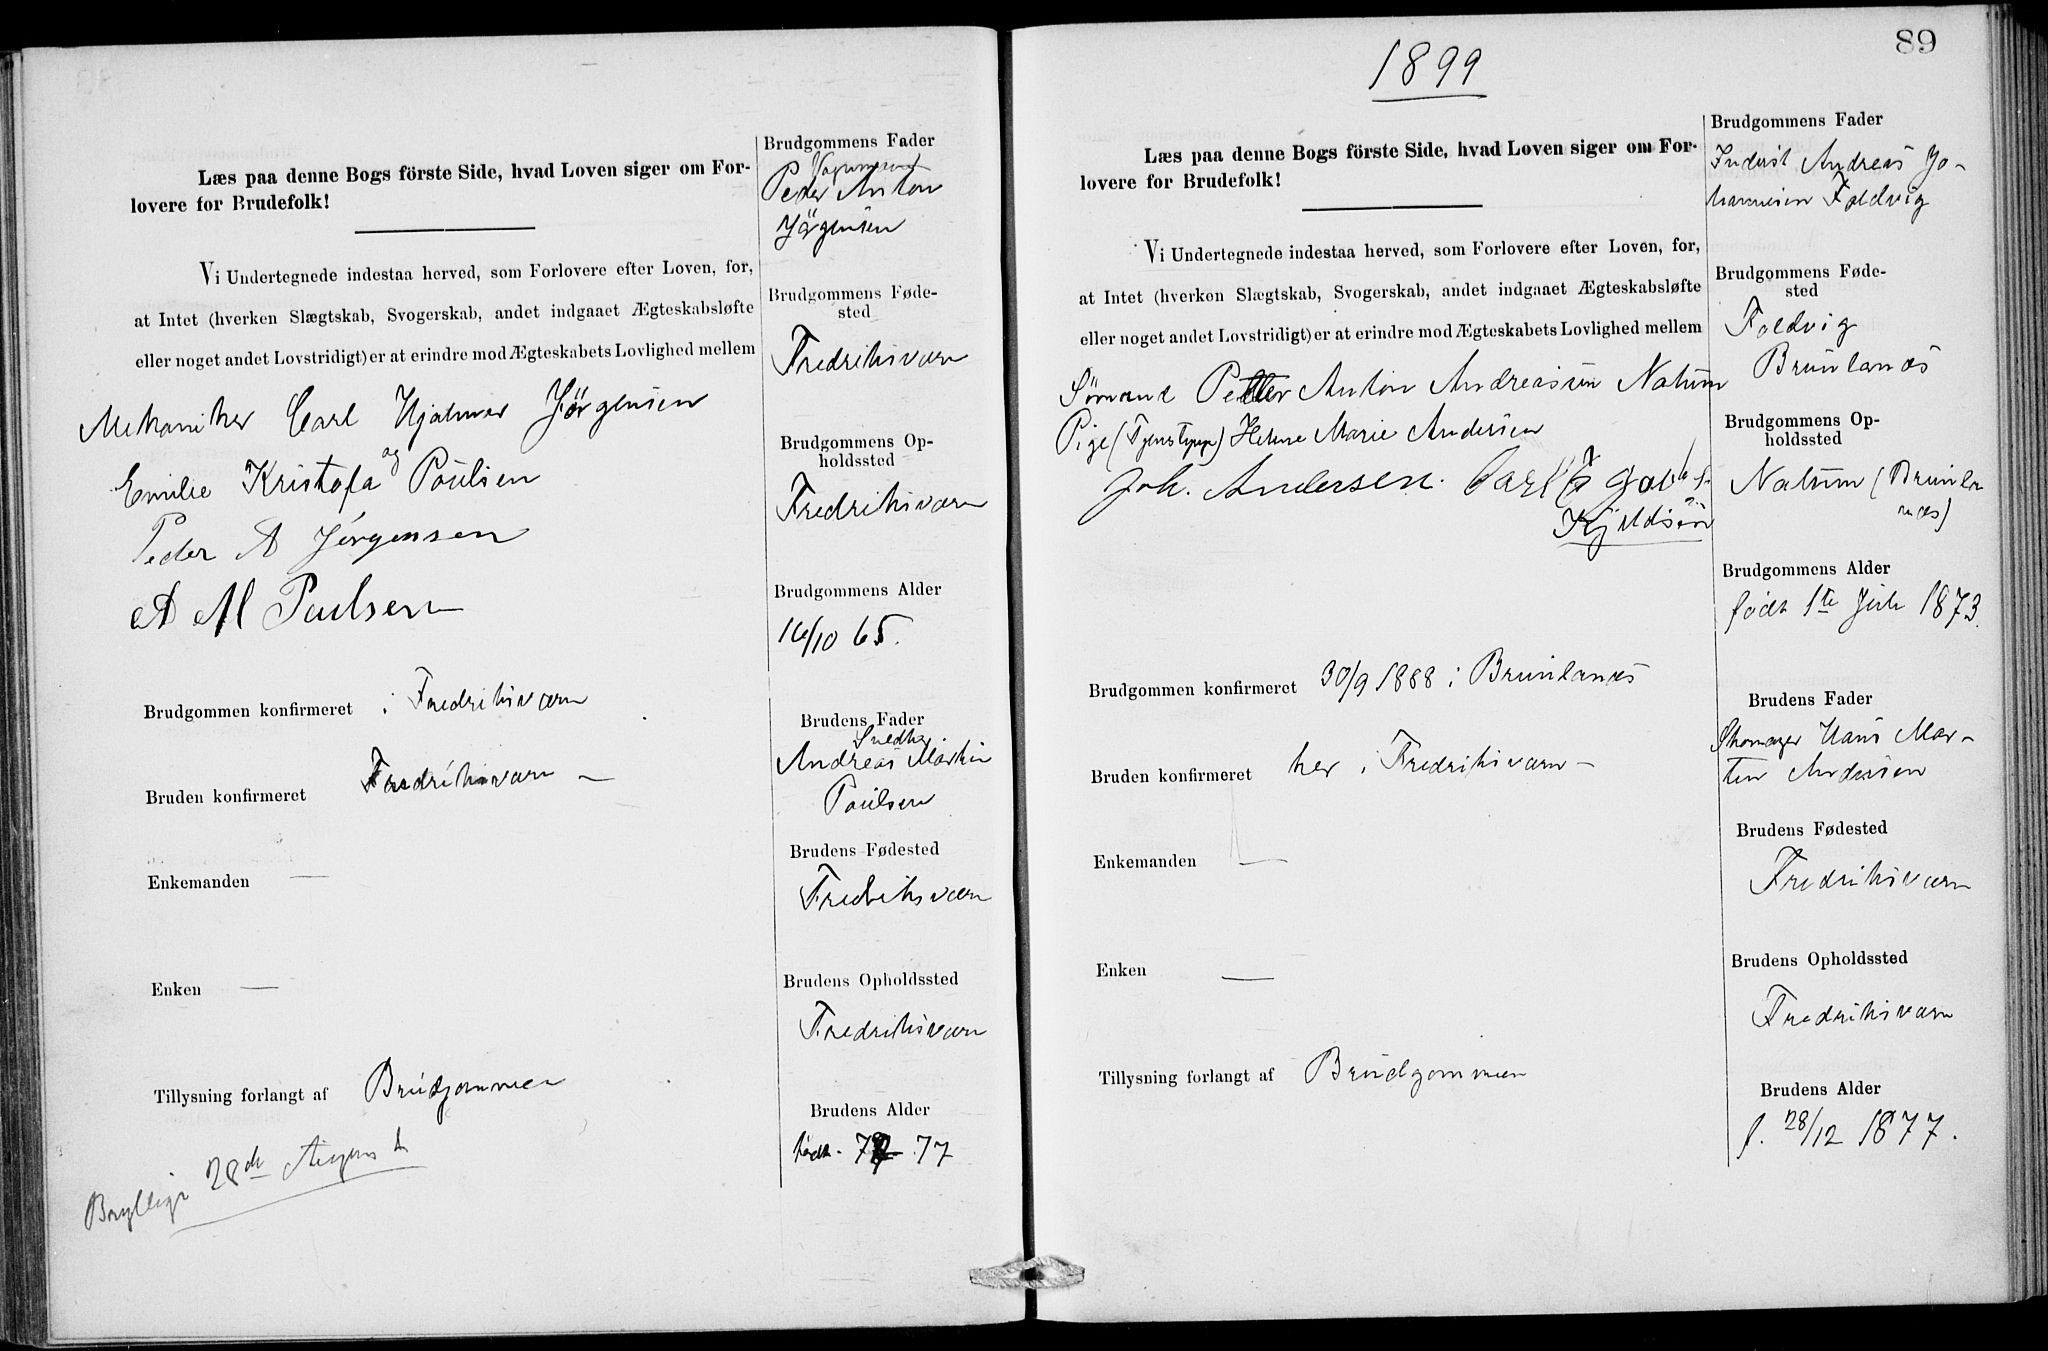 Læs paa denne Bogs förste Side, hvad Loven siger om For-
lovere for Brudefolk!
Vi Undertegnede indestaa herved, som Forlovere efter Loven, for,
at Intet (hverken Slægtskab, Svogerskab, andet indgaaet Ægteskabsløfte
eller noget andet Lovstridigt) er at erindre mod Ægteskabets Lovlighed mellem
Mekaniker Carl Hjalmar Jørgensen
og
Emilie Kristofa Poulsen
Peder A Jørgensen
A M Paulsen
Brudgommen konfirmeret i Fredriksværn
Bruden konfirmeret Fredriksværn —
Enkemanden —
Enken —
Tillysning forlangt af Brudgommen
Bryllup 28de August
Brudgommens Fader
Peder Anton
Jörgensen
Brudgommens Føde-
sted
Fredriksværn
Brudgommens Op-
holdssted
Fredriksværn
Brudgommens Alder
16/10 65.
Brudens Fader
Andreas Martin
Poulsen
Brudens Fødested
Fredriksværn
Brudens Opholdssted
Fredriksværn
Brudens Alder
født 77
1899
89
Læs paa denne Bogs förste Side, hvad Loven siger om For-
lovere for Brudefolk!
Vi Undertegnede indestaa herved, som Forlovere efter Loven, for,
at Intet (hverken Slægtskab, Svogerskab, andet indgaaet Ægteskabsløfte
eller noget andet Lovstridigt) er at erindre mod Ægteskabets Lovlighed mellem
Sömand Petter Anton Andreasen Nalum
Pige (Tjenstepige) Helene Marie Andersen
Joh. Andersen. Carl
Kjeldsen
Brudgommen konfirmeret 30/9 1888 i Brunlanæs
Bruden konfirmeret her i Fredriksværn —
Enkemanden —
Enken —
Tillysning forlangt af Brudgommen
Brudgommens Fader
Inderst Andreas Jo-
hannesen Foldvig
Brudgommens Føde-
sted
Foldvig
Brunlanæs
Brudgommens Op-
holdssted
Nalum (Brunla
næs)
Brudgommens Alder
født 1te Juli 1873.
Brudens Fader
Skomager Hans Mar-
tin Andersen
Brudens Fødested
Fredriksværn
Brudens Opholdssted
Fredriksværn
Brudens Alder
f. 28/12 1877.